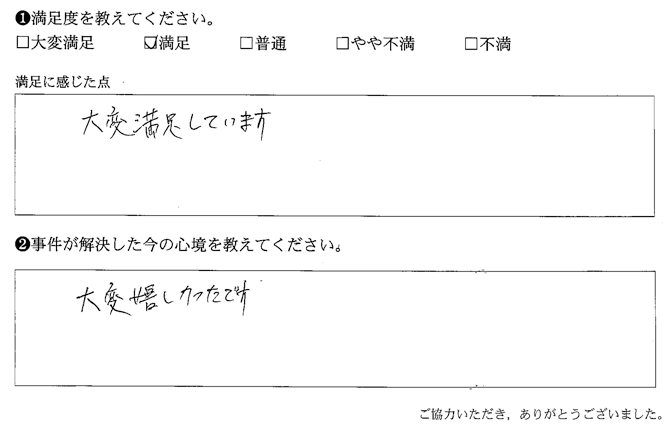 ❶満足度を教えてください。
□大変満足 ☑満足 □普通 □やや不満 □不満
満足に感じた点
大変満足しています
❷事件が解決した今の心境を教えてください。
大変嬉しかったです
ご協力いただき，ありがとうございました。